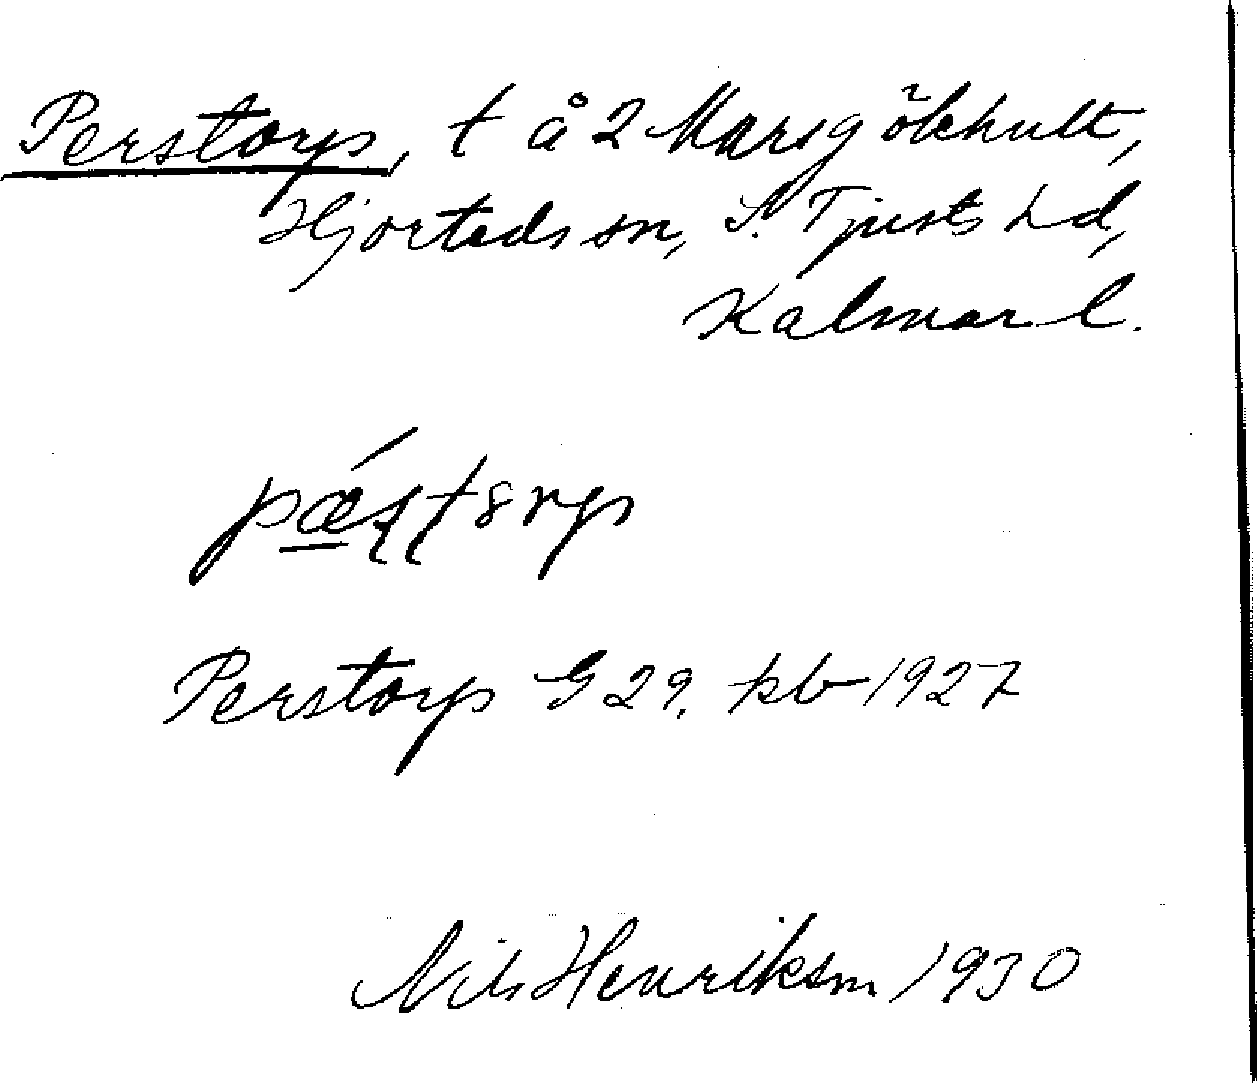 Perstorp, t å 2 Marsgölehult,
Hjorteds sn, S. Tjusts hd,
Kalmar l.
Perstorp G 29. kb 1927
Nils Henriksson 1930